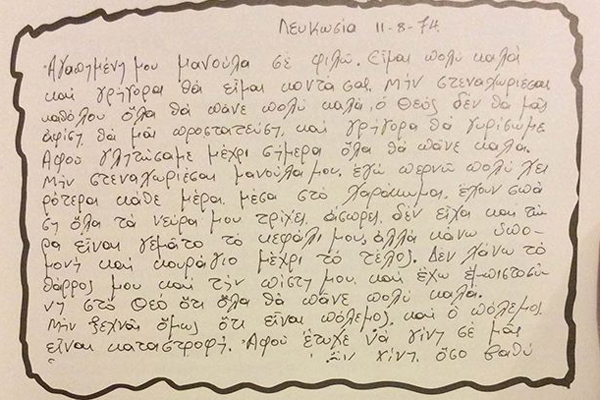 Λευκωσία 11-8-74.
Ἀγαπημένη μου μανούλα σέ φιλῶ. Εἶμαι πολύ καλά
καί γρήγορα θά εἶμαι κοντά σας. Μήν στεναχωριέσαι
καθόλου ὅλα θά πᾶνε πολύ καλά, ὁ Θεός δέν θά μᾶς
ἀφίση, θά μᾶς προστατεύση, καί γρήγορα θά γυρίσωμε
Ἀφοῦ γλητώσαμε μέχρι σήμερα ὅλα θά πᾶνε καλά.
Μήν στεναχωριέσαι μανούλα μου, ἐγώ περνῶ πολύ χει
ρότερα κάθε μέρα, μέσα στό χαράκωμα, ἔχουν σπά
ση ὅλα τά νεῦρα μου τρίχες, ἄσπρες, δέν εἶχα καί τώ
ρα εἶναι γεμᾶτο τό κεφάλι μου, ἀλλά κάνω ὑπο-
μονή καί κουράγιο μέχρι τό τέλος. Δέν χάνω τό
θάρρος μου καί τήν πίστη μου, καί ἔχω ἐμπιστοσύ
νη στό Θεό ὅτι ὅλα θά πᾶνε πολύ καλά.
Μήν ξεχνᾶς ὅμως ὅτι εἶναι πόλεμος, καί ὁ πόλεμος
εἶναι καταστροφή. Ἀφοῦ ἔτυχε νά γίνη σέ μᾶς
γίνη, ὅσο βαθύ